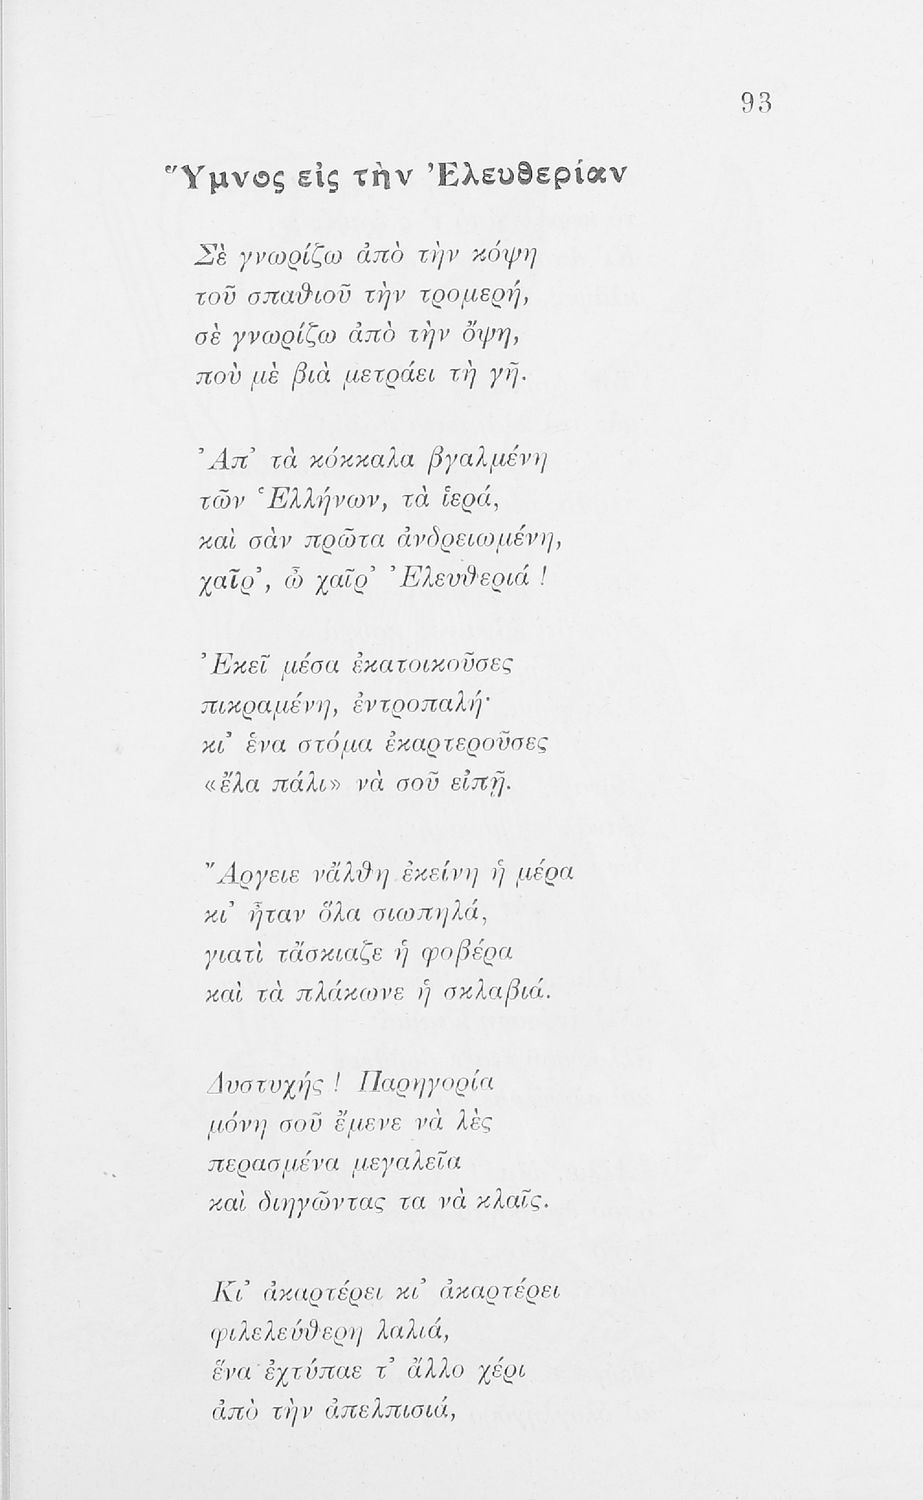 93
Ὕμνος εἰς τὴν Ἐλευθερίαν
Σὲ γνωρίζω ἀπὸ τὴν κόψη
τοῦ σπαθιοῦ τὴν τρομερή,
σὲ γνωρίζω ἀπὸ τὴν ὄψη,
ποὺ μὲ βιὰ μετράει τὴ γῆ.
Ἀπ’ τὰ κόκκαλα βγαλμένη
τῶν Ἑλλήνων, τὰ ἱερά,
καὶ σὰν πρῶτα ἀνδρειωμένη,
χαῖρ’, ὦ χαῖρ’ Ἐλευθεριά !
Ἐκεῖ μέσα ἐκατοικοῦσες
πικραμένη, ἐντροπαλή·
κι’ ἕνα στόμα ἐκαρτεροῦσες
«ἔλα πάλι» νὰ σοῦ εἰπῇ.
Ἄργειε νἄλθῃ ἐκείνη ἡ μέρα
κι’ ἦταν ὅλα σιωπηλά,
γιατὶ τἄσκιαζε ἡ φοβέρα
καὶ τὰ πλάκωνε ἡ σκλαβιά.
Δυστυχής ! Παρηγορία
μόνη σοῦ ἔμενε νὰ λὲς
περασμένα μεγαλεῖα
καὶ διηγῶντας τα νὰ κλαῖς.
Κι’ ἀκαρτέρει κι’ ἀκαρτέρει
φιλελεύθερη λαλιά,
ἕνα ἐχτύπαε τ’ ἄλλο χέρι
ἀπὸ τὴν ἀπελπισιά,